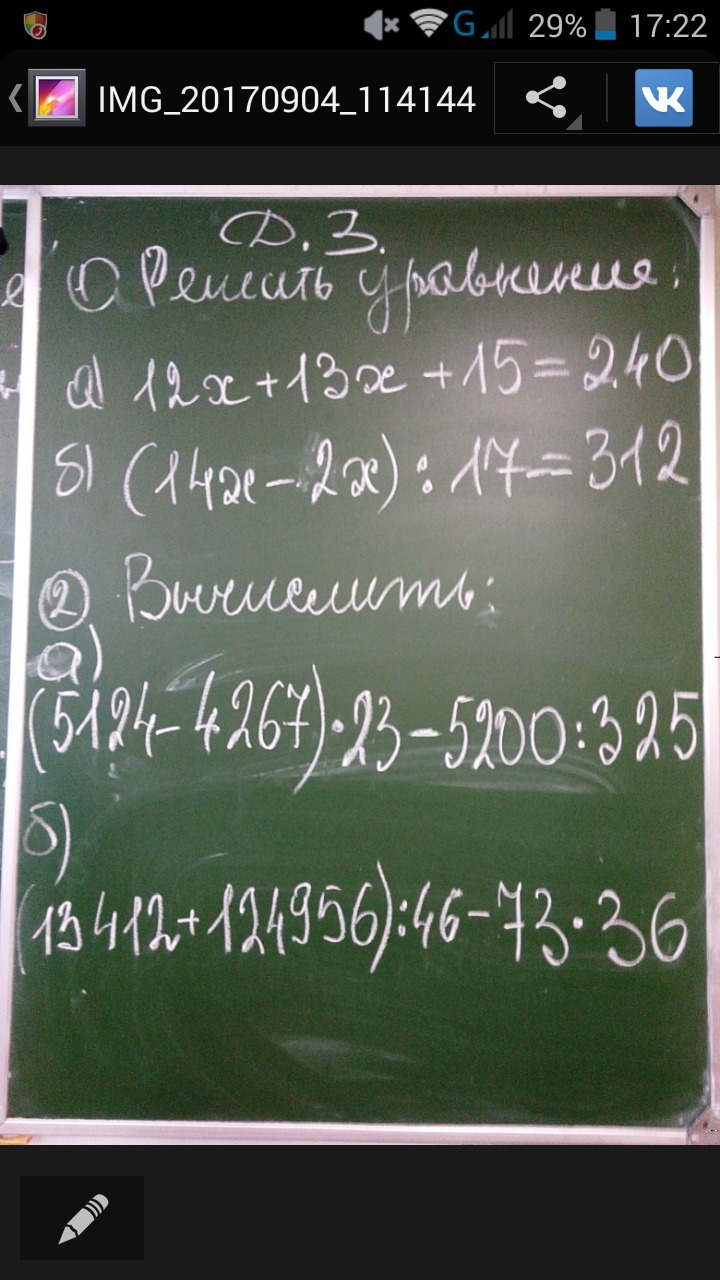 29% 17:22
IMG_20170904_114144
Д.З.
① Решить уравнение:
а) 12x+13x+15=240
б) (14x-2x):17=312
② Вычислить:
а)
(5124-4267)·23-5200:325
б)
(13412+124956):46-73·36